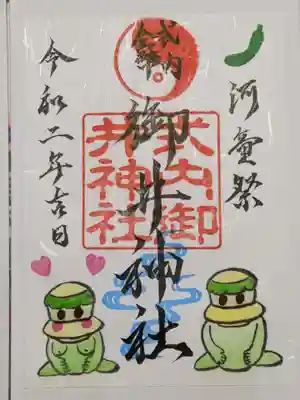 河童祭
式内
御井神社
令和二年吉日
井神社